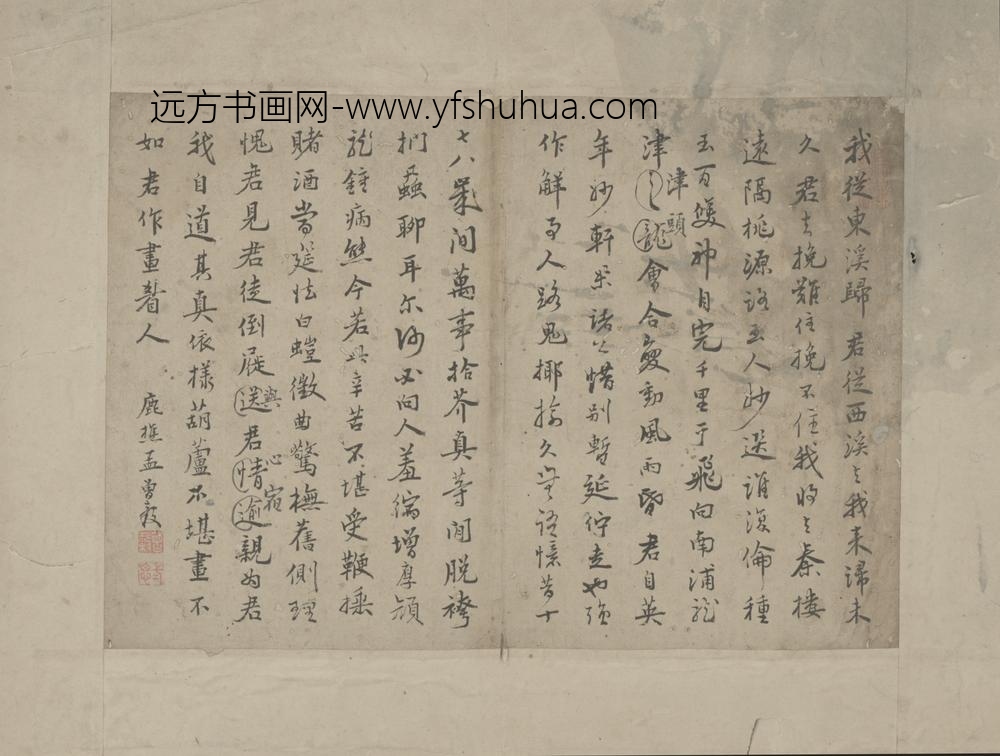 远方书画网-www.yfshuhua.com
我從東溪歸君從西溪去我來歸未
久君去挽難住挽不住我將去秦樓
遠隔桃源路玉人妙選誰須倫種
玉百雙神自完千里于飛向南浦龍
津龍會合變動風雨昏君自英
津頭
年妙軒渠諸公惜別暫延佇走也強
作解事人路鬼揶揄久憶昔十
七八歲間萬事拾芥真等閒脫袴
捫蝨聊耳尔何必向人羞徧增厚顔
龍鍾病態今若此辛苦不堪受鞭捶
賭酒當筵怯白螘徵曲驚撫舊側理
愧君見君徒倒屣送君情逾親為君
與心
我自道其真依樣葫蘆不堪畫不
如君作畫着人
鹿樵孟曾